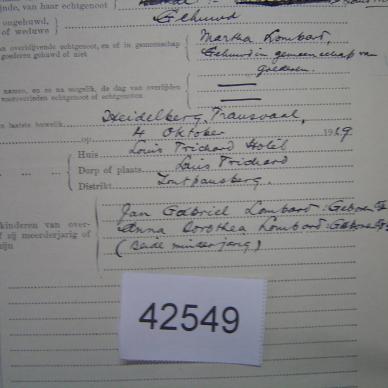 van haar echtgenoot
ongehuwd,
of weduwe
Gehuwd
overlijdende echtgenoot, en of in gemeenschap
goederen gehuwd of niet
Martha Lombart,
Gehuwd in gemeenschap van
goederen.
namen, en zo na mogelik, de dag van overlijden
vooroverleden echtgenoot of echtgenoten
laatste huwelik
Heidelberg, Transvaal,
op 4 Oktober 1919
Huis Louis Trichard Hotel
Dorp of plaats Louis Trichard
Distrikt Zoutpansberg.
kinderen van over-
zij meerderjarig of
zijn
Jan Gabriel Lombart: Geboren
Anna Dorothea Lombart: Geboren
(Beide minderjarig)
42549